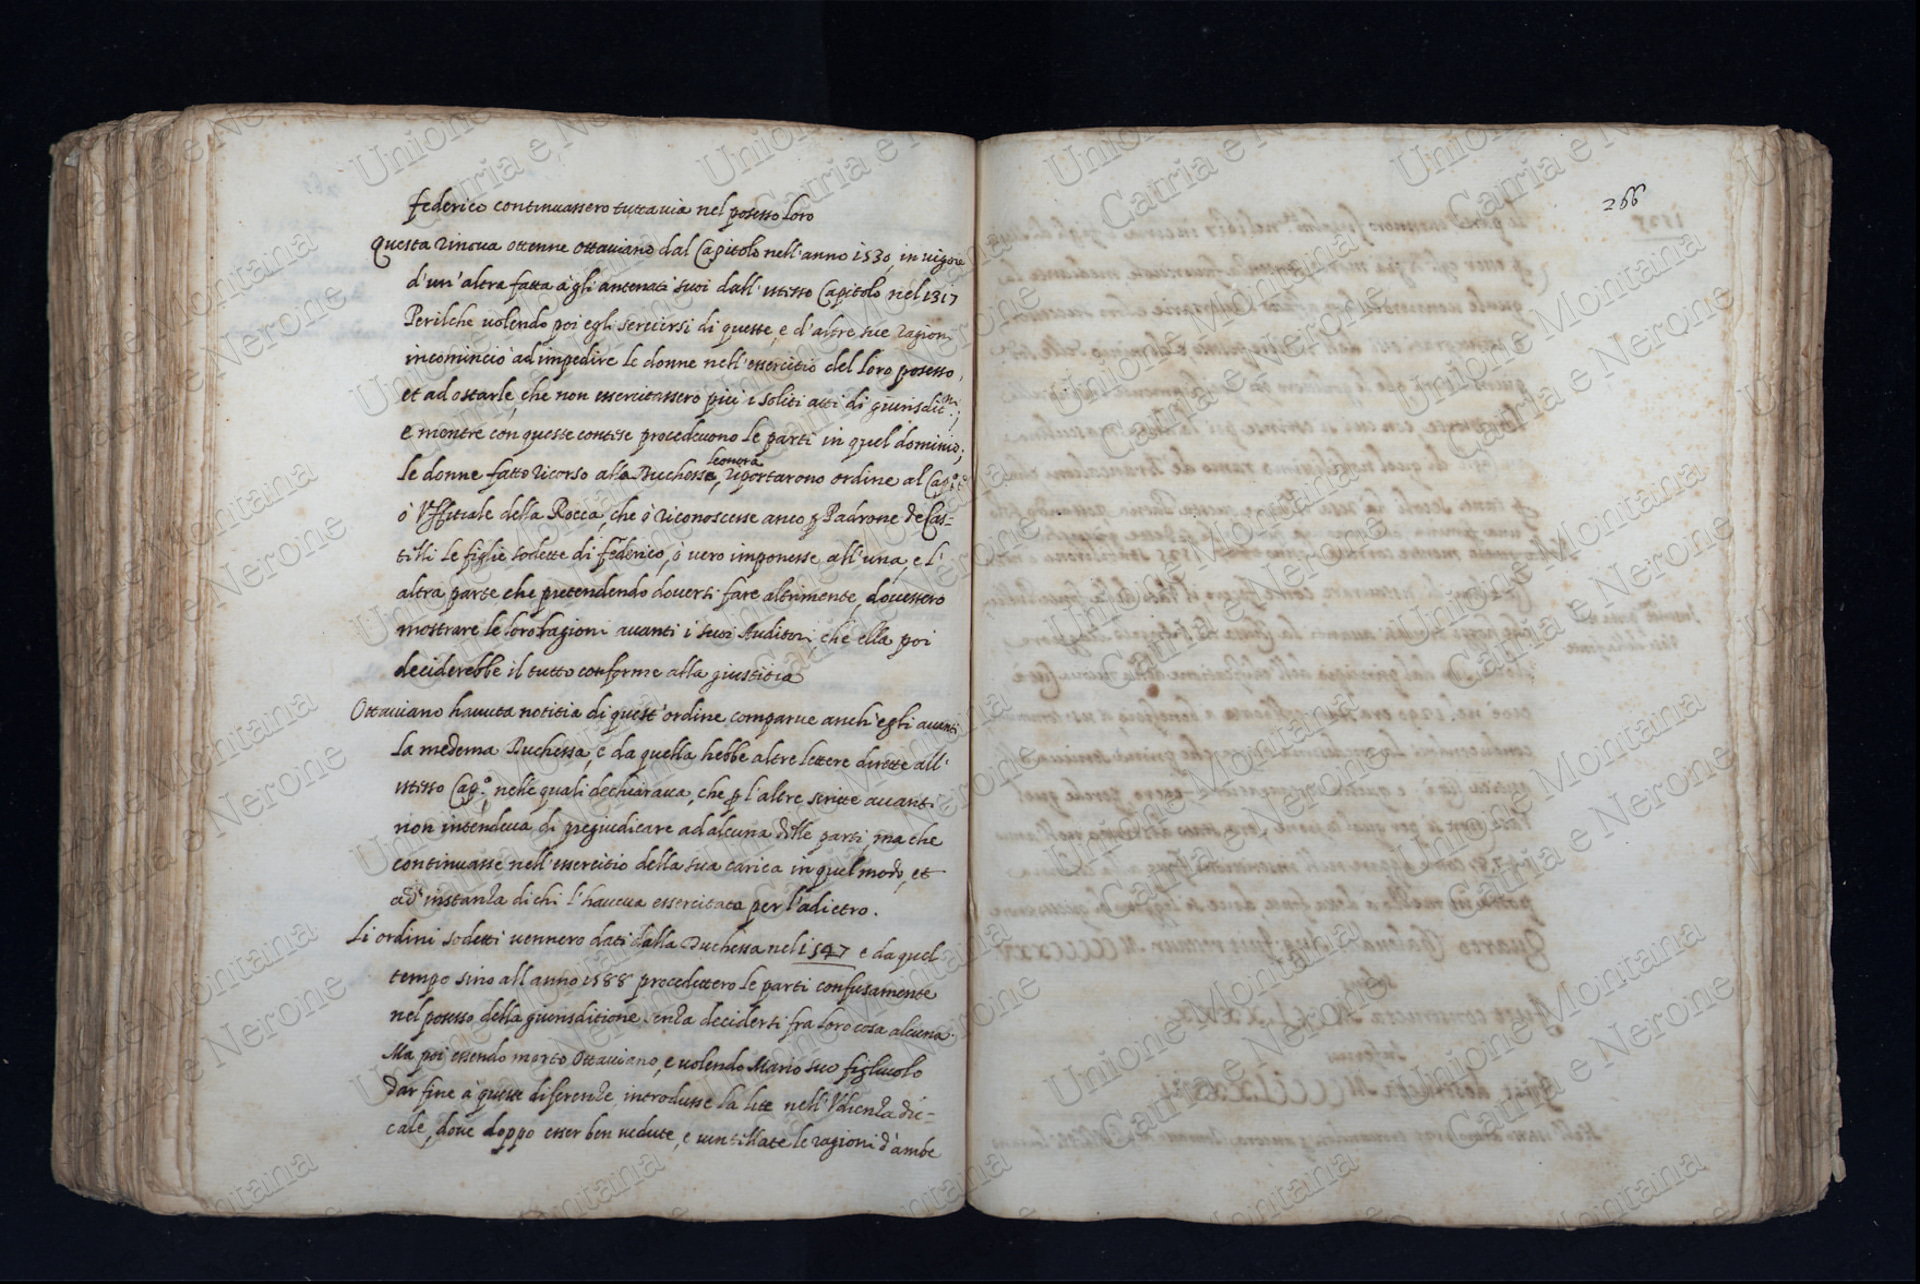 federico continuassero tuttavia nel posesso loro
Questa rincva ottenne Ottaviano dal Capitolo nell'anno 1530, in vigore
d'un'altra fatta à gli antenati suoi dall'istesso Capitolo nel 1317
Perilche volendo poi egli servirsi di queste, e d'altre sue ragioni
incominciò ad impedire le donne nell'essercitio del loro posesso,
et ad ostarle, che non essercitassero più i soliti atti di giurisdic.ne;
e mentre con queste contese procedevono le parti in quel dominio;
le donne fatto ricorso alla Duchessa leonora, riportarono ordine al Cap.
ò Uffitiale della Rocca, che ò riconoscesse anco p Padrone de Cas-
tilli le figlie sodette di federico, ò vero imponesse all'una, e l'
altra parte che pretendendo doversi fare altrimente, dovessero
mostrare le loro ragioni avanti i suoi Auditori, che ella poi
deciderebbe il tutto conforme alla giustitia
Ottaviano havuta notitia di quest'ordine comparve anch'egli avanti
la medema Duchessa, e da quella hebbe altre lettere dirette all'
istesso Cap.o, nelle quali dechiarava, che p l'altre scritte avanti
non intendeva di pregiudicare ad alcuna delle parti, ma che
continuasse nell'essercitio della sua carica in quel modo, et
ad instanza di chi l'haveva essercitata per l'adietro.
Li ordini sodetti vennero dati dalla Duchessa nel 1547 e da quel
tempo sino all'anno 1588 procedettero le parti confusamente
nel posesso della giurisditione senza decidersi fra loro cosa alcuna.
Ma poi essendo morto Ottaviano, e volendo Mario suo figliuolo
dar fine à queste diferenze, introdusse la lite nell'Udienza du-
cale, dove doppo esser ben vedute, e ventillate le ragioni d'ambe
266
Unione Montana
Catria e Nerone